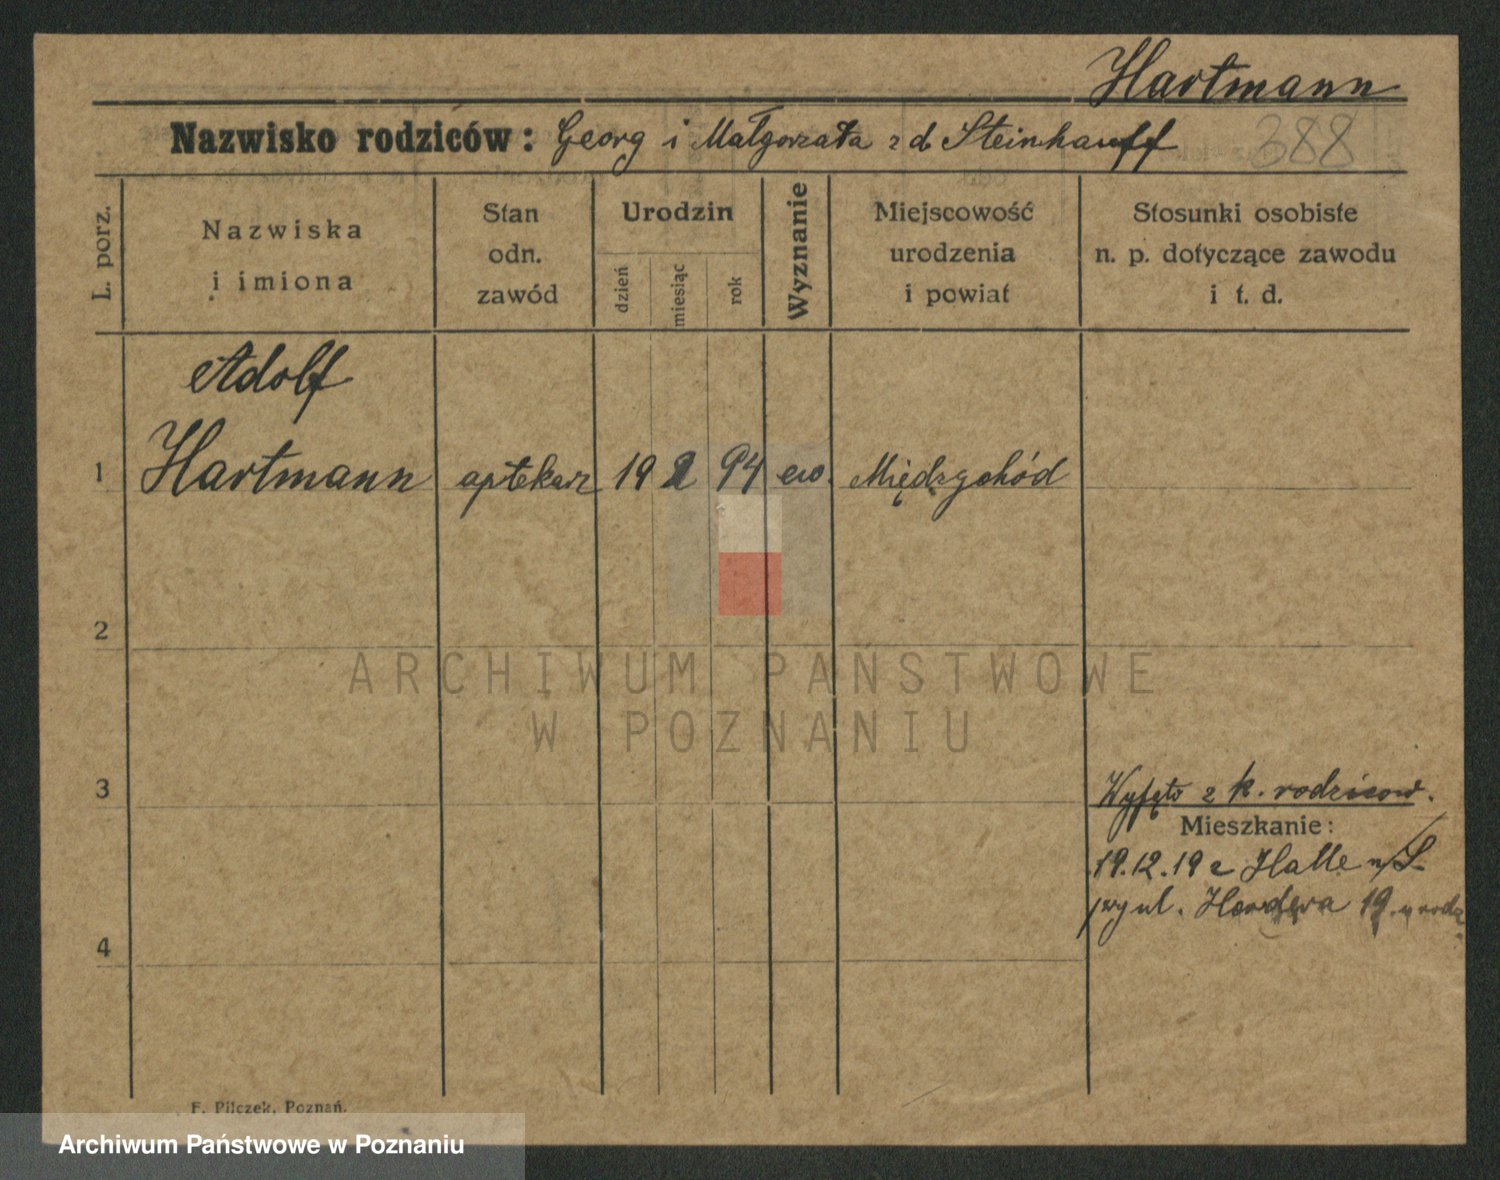 Hartmann
Nazwisko rodziców: Georg i Małgorzata z d Steinhauff
388
L. porz.
Nazwiska
i imiona
Stan
odn.
zawód
Urodzin
dzień
miesiąc
rok
Wyznanie
Miejscowość
urodzenia
i powiat
Stosunki osobiste
n. p. dotyczące zawodu
i t. d.
Adolf
1 Hartmann aptekarz 19 2 94 ew. Międzychód
2
ARCHIWUM PAŃSTWOWE
W POZNANIU
3
Wyjęto z k. rodziców.
Mieszkanie:
19.12.19 z Halle n/S
przy ul. 19.
4
F. Pilczek, Poznań.
Archiwum Państwowe w Poznaniu